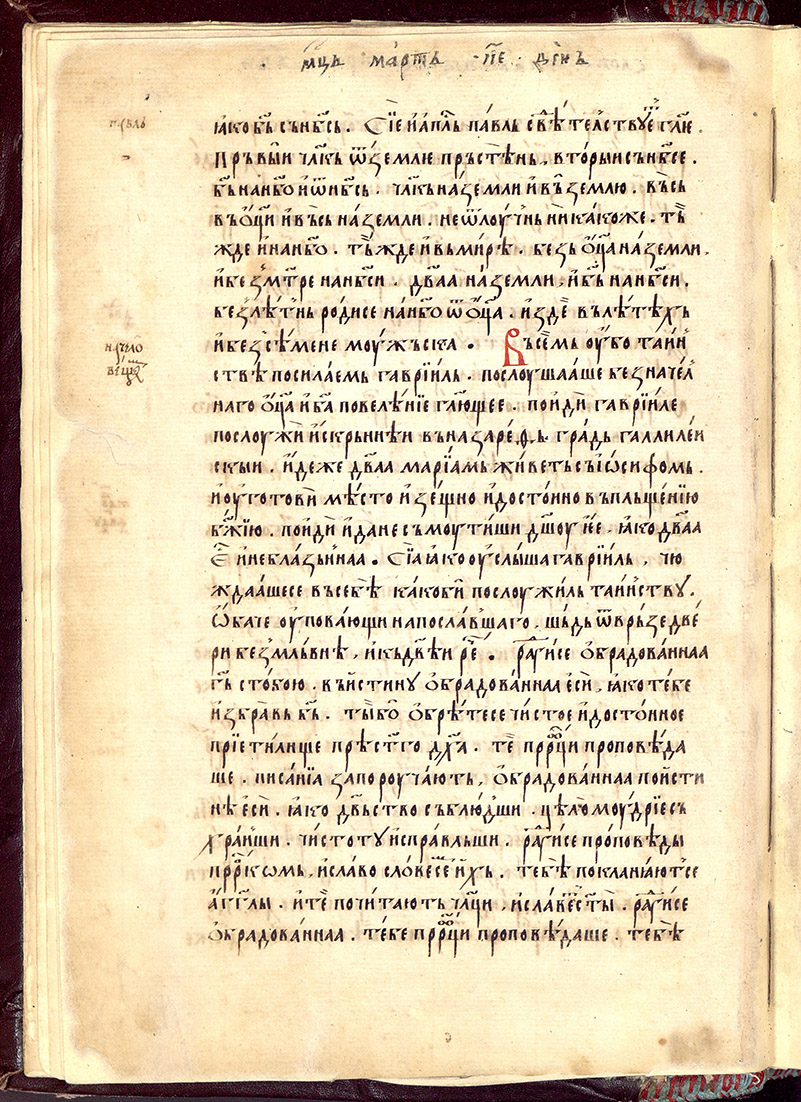 мц҃ь ма́рть · п҃е · дн҃ь
па́вль
ꙗко бг҃ь сь нб҃сь . Сїе и҆ ап҃ль па́вль свѣ́тел҆ствꙋет҆ гл҃ѥ .
Прьвы́и чл҃кь ѿ зе́мли прьсте́нь . вторы́и сь нб҃се .
бг҃ь на нб҃ѡ и҆ ѿ нб҃сь . чл҃кь на зе́мли и҆ вь зе́млю . вь́сь
вь ѻ҆ц҃и и҆ вь́сь на зе́мли . не ѿлоу́чнь ни ка́коже . тѣ́
жде и҆ на нб҃ѡ . тѣ́жде и҆ вь ми́рѣ . безь ѻ҆ц҃а на зе́мли .
и҆ без мт҃ре на нб҃си . дв҃аа на зе́мли , и҆ бг҃ь на нб҃си .
безлѣ́тнь ро́дисе на нб҃ѡ ѿ ѻ҆ц҃а . и҆зде̑ вь лѣ́тѣхь
и҆ безсѣ́мене моу́жьска . Вь се́мь оу҆́бо таи́н
начело
вь́ще
ствѣ посила́емь гаврїи́ль . послоуша́аше безначе́л
наго ѻ҆ц҃а и҆ ба҃ повелѣ́нїе гл҃ющее . пои́ди гаврїи́ле
послоужи́ и҆скрьни́еи вь назаре́.ѳ.ь гра́дь галлиле́и
скыи . и҆де́же дв҃аа марїа́мь живе́ть сь і҆ѡ҆́сифомь .
и҆ оу҆гото́ви мѣ́сто и҆зе́щно и҆ досто́нно вьплыще́нїю
бж҃їю . пои́ди и҆ да не сьмоути́ши дш҃оу ѥ҆е . ꙗко дв҃аа
є҆ и҆ небла́зьнаа . Сїа ꙗко оу҆слы́ша гаврїи́ль , чю
жда́ашесе вь себѣ̀ ка́ко би́ послоужи́ль таи́нствꙋ .
Ѡ҆́баче оу҆пова́ющи на посла́вшаго . шь́дь ѿврь́зе две́
ри безмль́внѣ , и҆ кь дв҃ѣи ре҃ . ра́дꙋисе ѻ҆брадова́ннаа
гь҃ с тобо́ю . вь и҆́стинꙋ ѻ҆брадова́ннаа є҆сѝ , ꙗко те́бе
и҆збра́вь бг҃ь . ты́ бо ѻ҆брѣ́тесе чи́стое и҆ досто́нное
прїе́тилище прѣст҃го дх҃а . те прⷪ҇рци проповѣ́да
ше . писа́нїа запороуча́ють , ѻ҆брадова́ннаа пои҆сти
нѣ є҆сѝ . ꙗко дв҃ьство сьблю́дши . цѣломоу́дрїе сь
хра́нши . чи́стотꙋ и҆спра́вльши . ра́дꙋисе про́повѣды
прⷪ҇ркомь , и҆ сла́во слове́се и҆́хь . тебѣ́ покланꙗ́ютсе
а҆́гг҃лы . и҆ те почита́ють ча́щи , и҆ сла́вест҃ы . ра́дꙋисе
ѻ҆брадова́ннаа . те́бе прⷪ҇рци проповѣ́даше . тебѣ̀